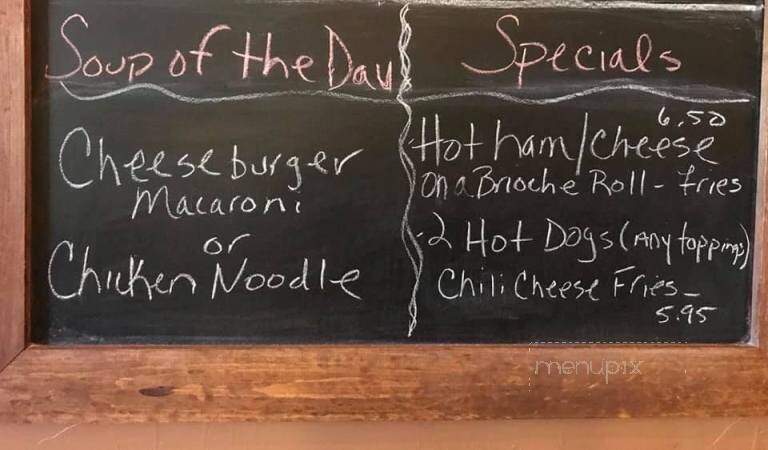 Soup of the Day
Cheeseburger
Macaroni
or
Chicken Noodle
Specials
6.50
Hot ham/cheese
on a Brioche Roll - fries
2 Hot Dogs (Any toppings)
Chili Cheese Fries -
5.95
menupix